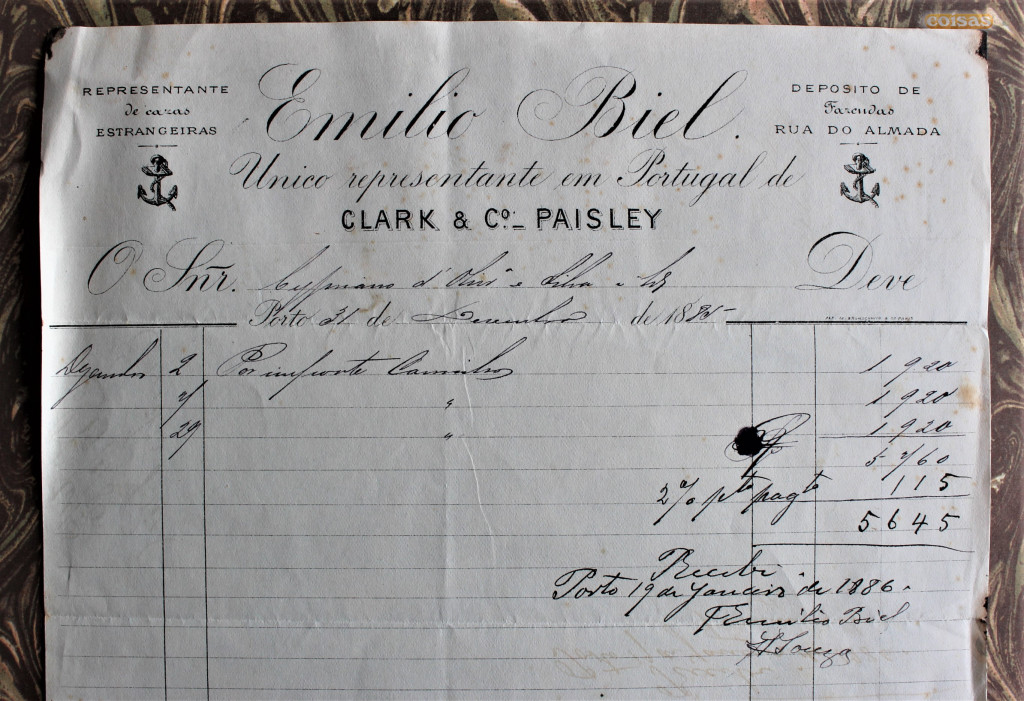 coisas
REPRESENTANTE
de cazas
ESTRANGEIRAS
Emilio Biel.
DEPOSITO DE
Fazendas
RUA DO ALMADA
Unico representante em Portugal de
CLARK & Cº_ PAISLEY
O Snr. Cypriano d' e Silva Deve
Porto 31 de Dezembro de 1885
2 Por importe 1 920
" 1 920
29 " 1 920
5 760
2% pto pagto 115
5645
Recebi
Porto 19 de Janeiro de 1886.
Emilio Biel
A Souza